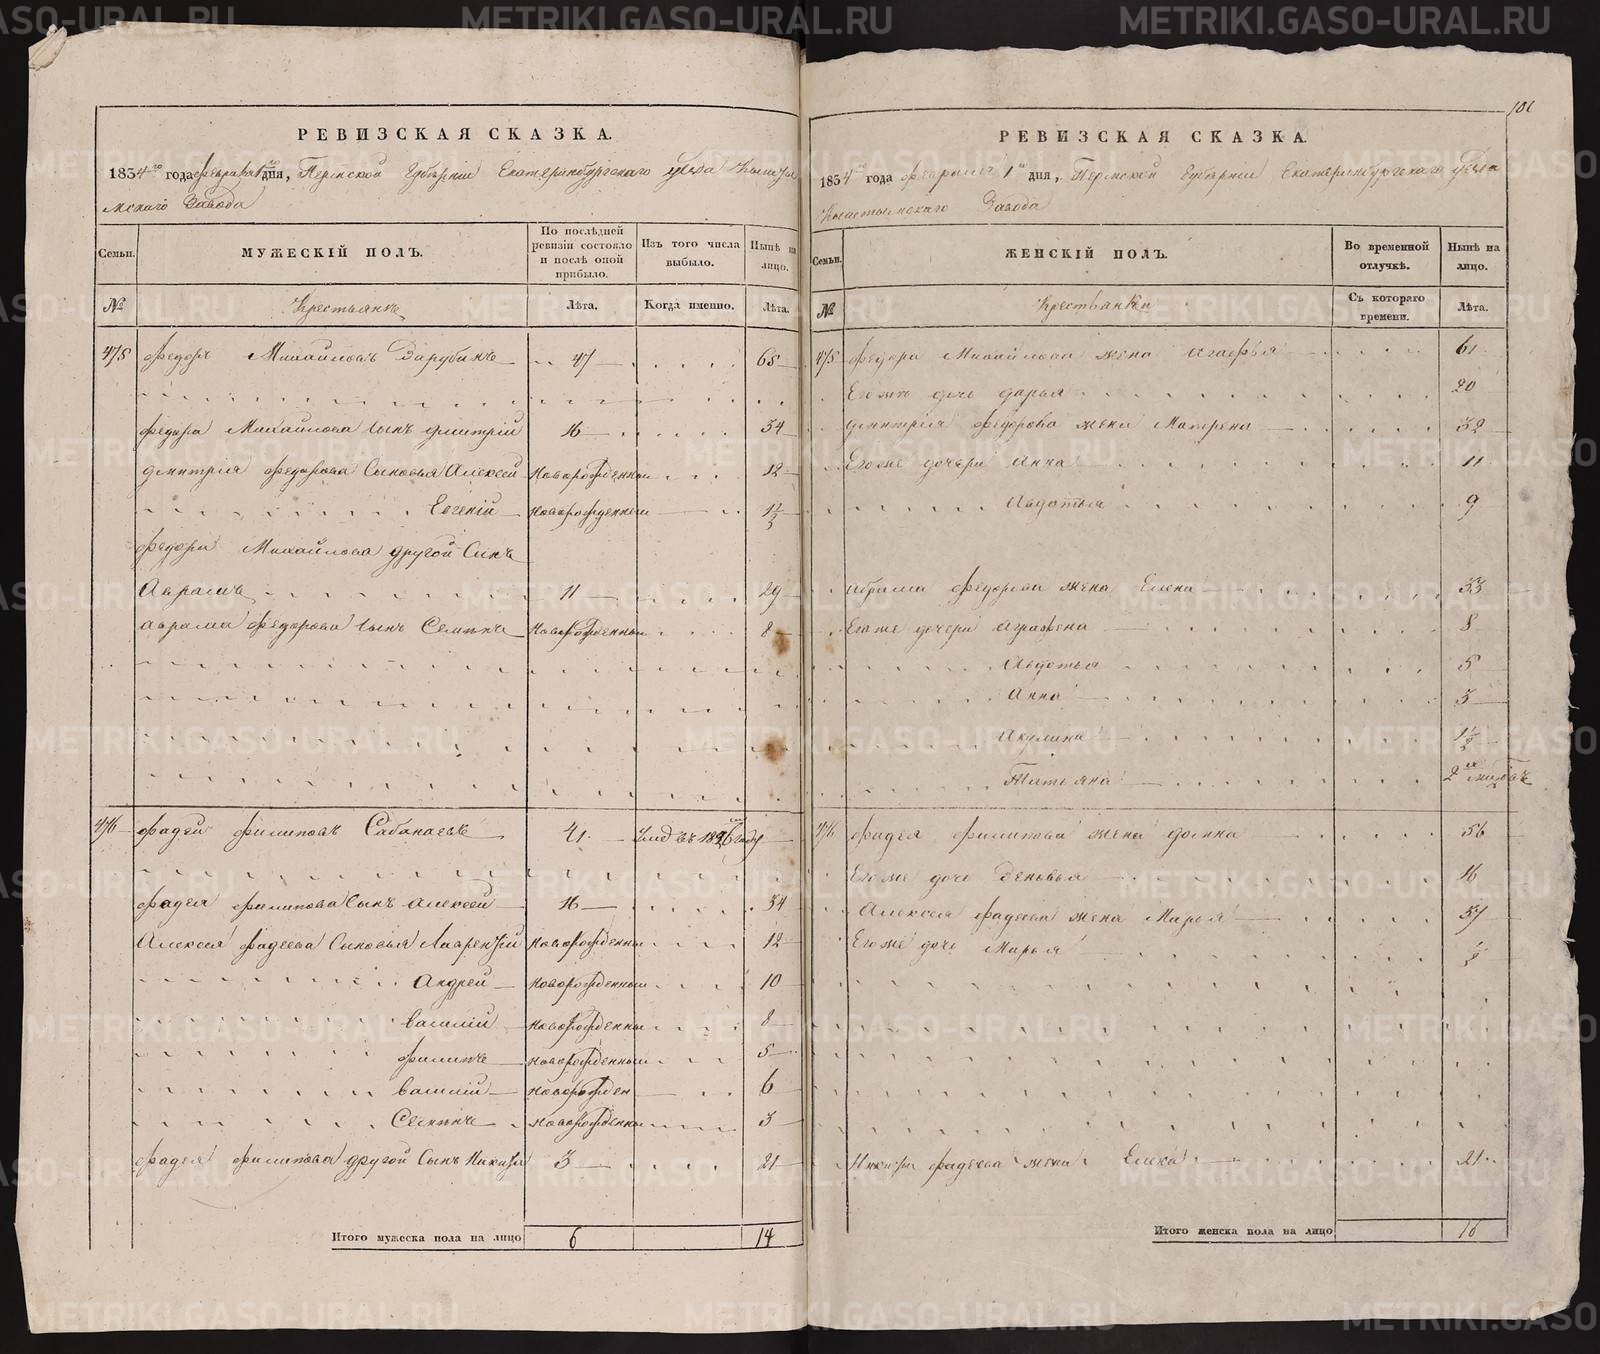 METRIKI.GASO-URAL.RU
101
РЕВИЗСКАЯ СКАЗКА.
1854го года февраля 1го дня, Пермской Губернiи Екатеринбургскаго уѣзда Кышты
мскаго Завода
Семьи.
МУЖЕСКIЙ ПОЛЪ.
По послѣдней ревизiи состояло и послѣ оной прибыло.
Изъ того числа выбыло.
Нынѣ на лицо.
№
Крестьянъ
Лѣта.
Когда именно.
Лѣта.
475 Федоръ Михайловъ Зарубинъ 47 65
Федора Михайлова Сынъ Дмитрiй 16 34
Дмитрiя Федорова Сыновья Алексей новорожденный 12
Евгенiй новорожденный 1½
Федора Михайлова другой Сынъ
Аврамъ 11 29
Аврама Федорова Сынъ Семенъ новорожденный 8
476 Фадей Филиповъ Сабанаевъ 41 Умеръ въ 1846 году
Фадея Филипова Сынъ Алексей 16 34
Алексея Фадеева Сыновья Лаврентiй новорожденный 12
Андрей новорожденный 10
Василiй новорожденный 8
Филипъ новорожденный 5
Василiй новорожден 6
Семенъ новорожденный 3
Фадея Филипова другой Сынъ Никита 3 21
Итого мужеска пола на лицо 6 14
РЕВИЗСКАЯ СКАЗКА.
1854го года февраля 1го дня, Пермской Губернiи Екатеринбургскаго уѣзда
Кыштымскаго Завода
Семьи.
ЖЕНСКIЙ ПОЛЪ.
Во временной отлучкѣ.
Нынѣ на лицо.
№
Крестьянки
Съ котораго времени.
Лѣта.
475 Федора Михайлова жена Агафья 61
Его же дочь Дарья 20
Дмитрiя Федорова жена Матрена 32
Его же дочери Анна 11
Авдотья 9
Абрама Федорова жена Елена 33
Его же дочери Аграфена 8
Авдотья 5
Анна 3
Акулина 1½
Татьяна 2
476 Фадея Филипова жена 56
Его же дочь Зеновья 16
Алексея Фадеева жена Марья 37
Его же дочь Марья ½
Никиты Фадеева жена Елена 21
Итого женска пола на лицо 16